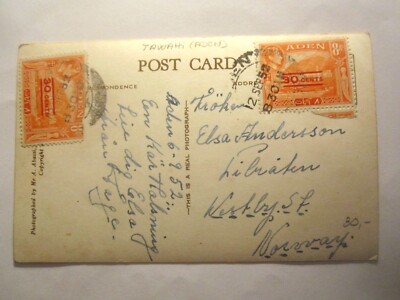 TAWAHI (ADEN)
POST CARD
ADEN
30 CENTS
30 CENTS
12 SE 52
8 30
CORRESPONDENCE
Aden 6-9-52.
En Kär Hälsning
till dig Elsa
från Åge.
THIS IS A REAL PHOTOGRAPH
Photographed by Mr A. 
Copyright
Fröken
Elsa Andersson
Kirkby. St
Norway
30,-